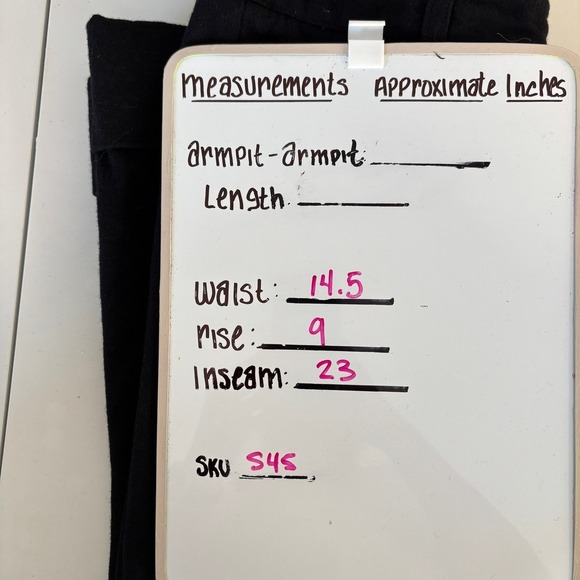 measurements Approximate Inches
armpit-armpit:
Length:
waist: 14.5
rise: 9
Inseam: 23
SKU S45